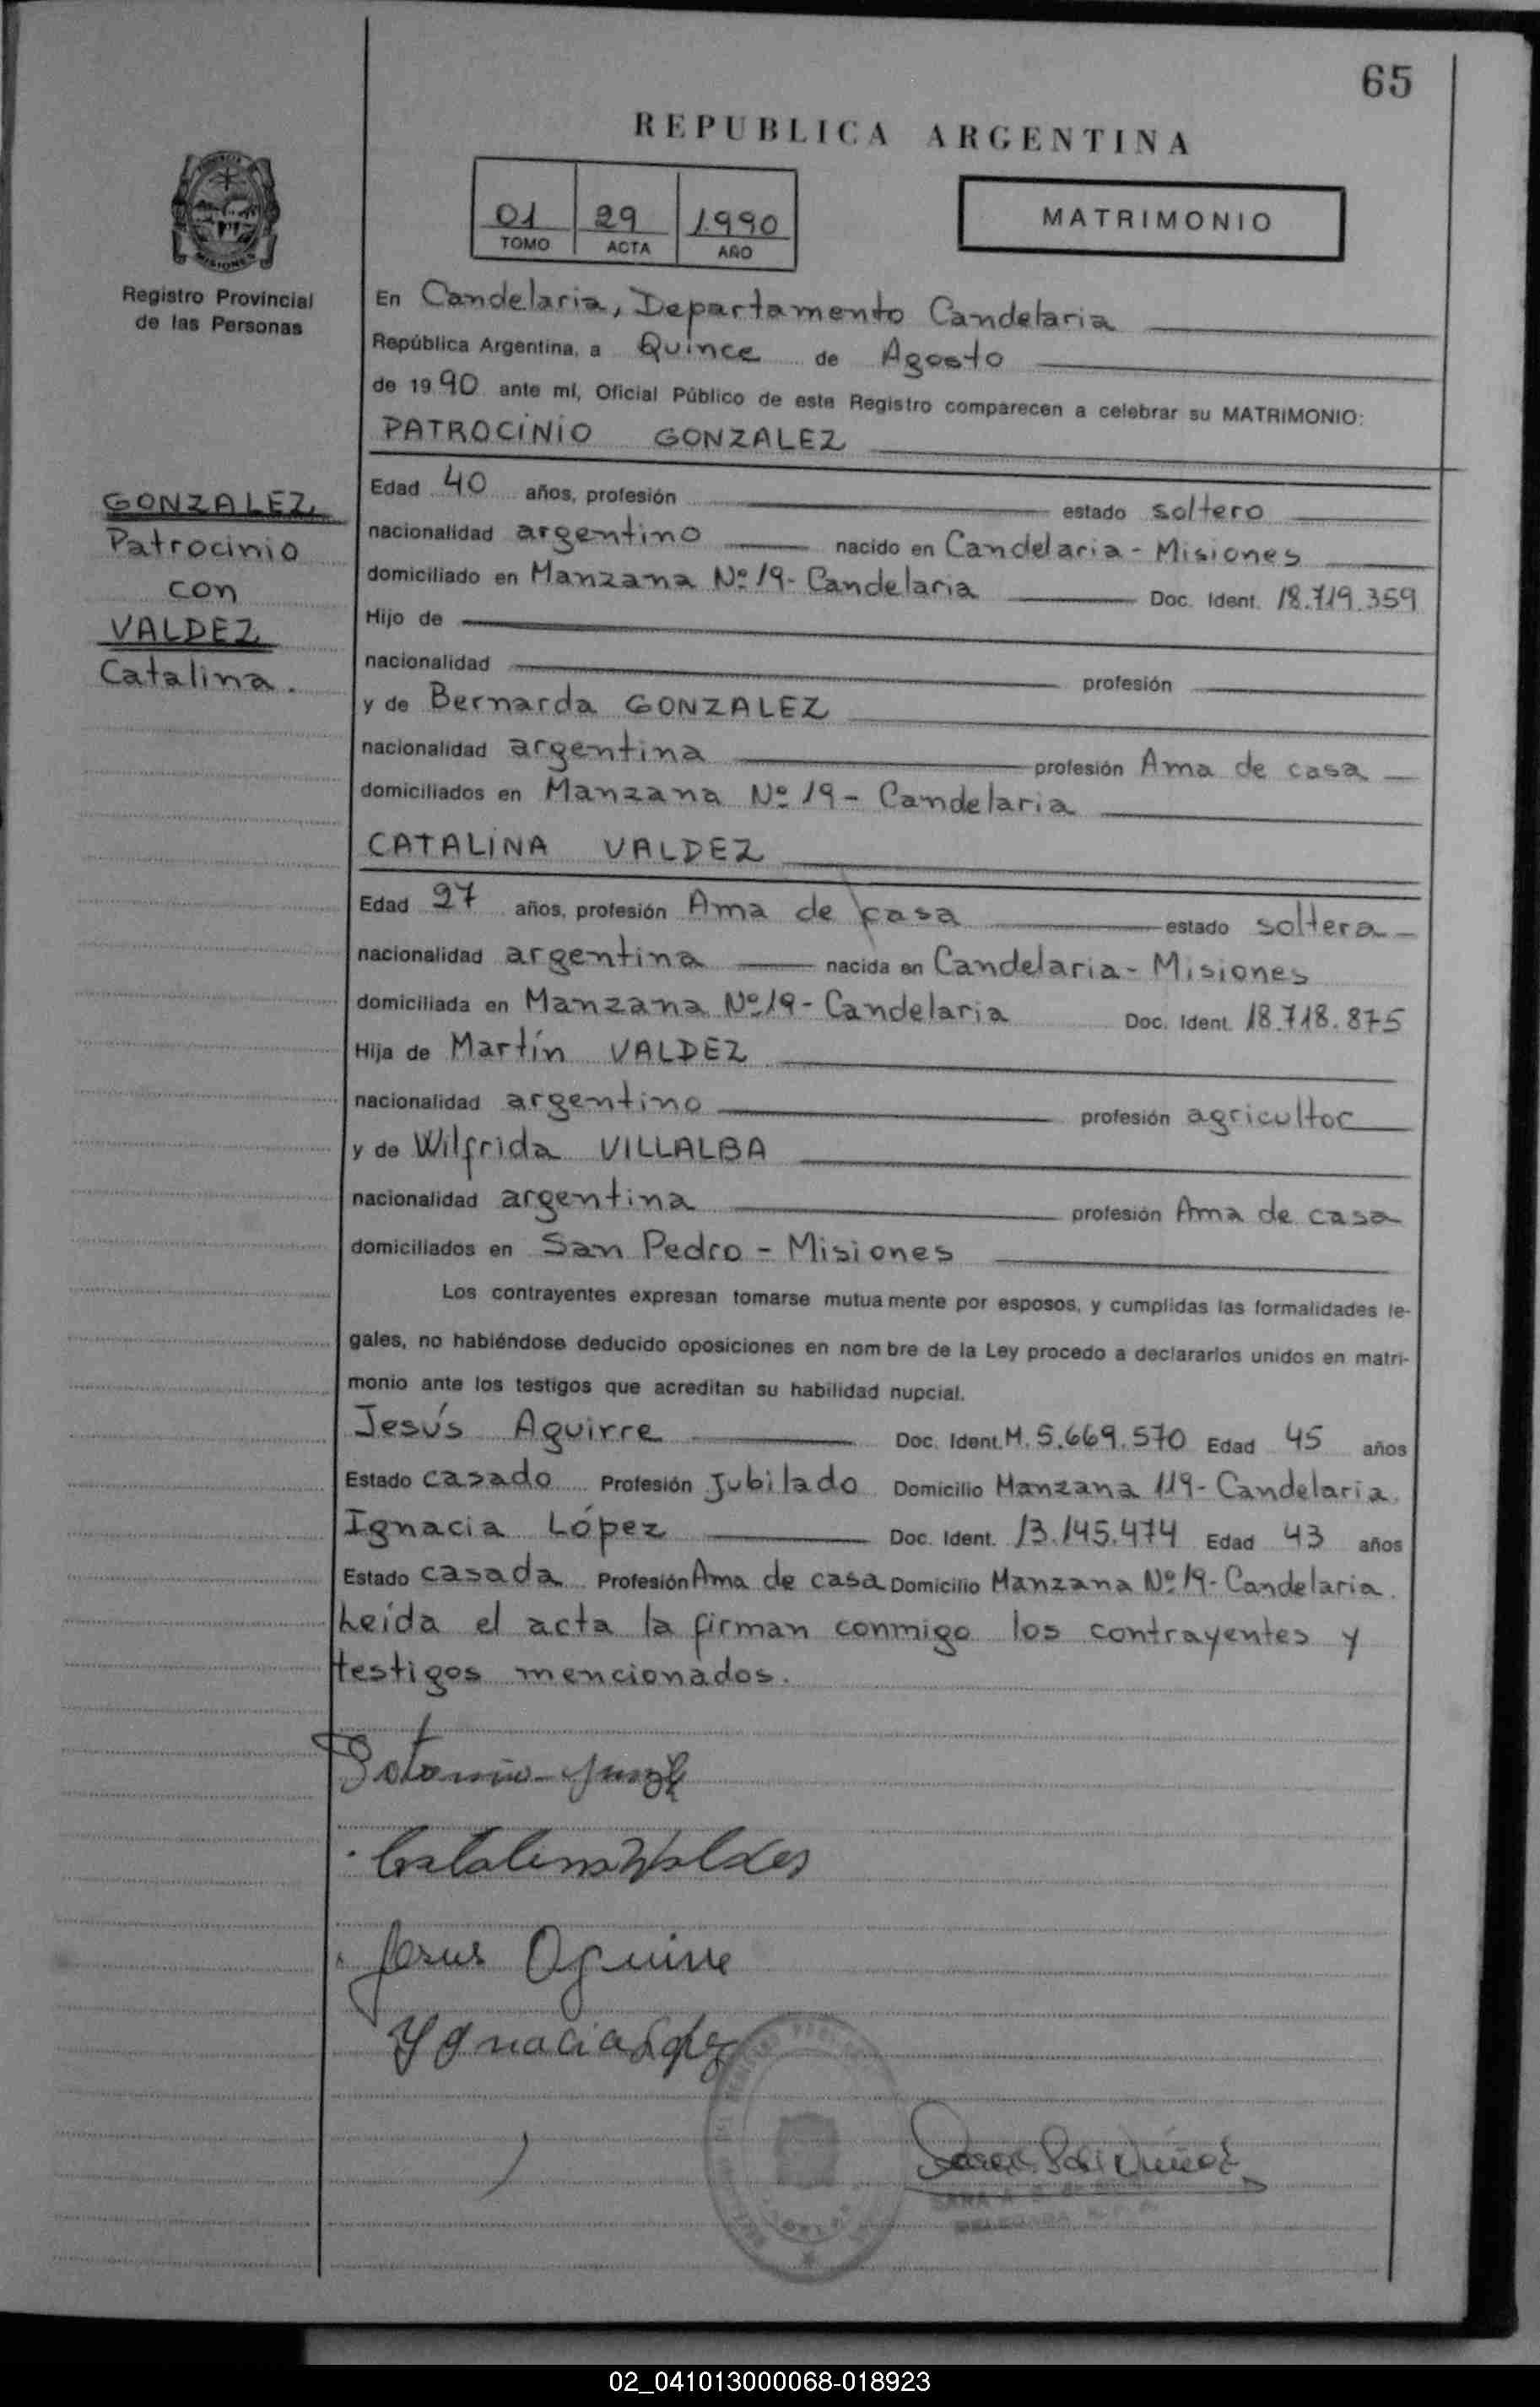 65
REPUBLICA ARGENTINA
01 29 1.990
TOMO ACTA AÑO
MATRIMONIO
MISIONES
Registro Provincial
de las Personas
En Candelaria, Departamento Candelaria
República Argentina, a Quince de Agosto
de 19 90 ante mí, Oficial Público de este Registro comparecen a celebrar su MATRIMONIO:
PATROCINIO GONZALEZ
GONZALEZ
Patrocinio
con
VALDEZ
Catalina.
Edad 40 años, profesión estado soltero
nacionalidad argentino nacido en Candelaria - Misiones
domiciliado en Manzana Nº 19 - Candelaria Doc. Ident. 18.719.359
Hijo de
nacionalidad profesión
y de Bernarda GONZALEZ
nacionalidad argentina profesión Ama de casa
domiciliados en Manzana Nº 19 - Candelaria
CATALINA VALDEZ
Edad 27 años, profesión Ama de casa estado soltera
nacionalidad argentina nacida en Candelaria - Misiones
domiciliada en Manzana Nº 19 - Candelaria Doc. Ident. 18.718.875
Hija de Martín VALDEZ
nacionalidad argentino profesión agricultor
y de Wilfrida VILLALBA
nacionalidad argentina profesión Ama de casa
domiciliados en San Pedro - Misiones
Los contrayentes expresan tomarse mutuamente por esposos, y cumplidas las formalidades le-
gales, no habiéndose deducido oposiciones en nombre de la Ley procedo a declararlos unidos en matri-
monio ante los testigos que acreditan su habilidad nupcial.
Jesús Aguirre Doc. Ident. M. 5.669.570 Edad 45 años
Estado casado Profesión Jubilado Domicilio Manzana 119 - Candelaria.
Ignacia López Doc. Ident. 13.145.474 Edad 43 años
Estado casada Profesión Ama de casa Domicilio Manzana Nº 19 - Candelaria.
Leída el acta la firman conmigo los contrayentes y
testigos mencionados.
Catalina Valdes
Jesus Aguirre
Ygnacia Lopez
SARA
DELEGADA
02_041013000068-018923